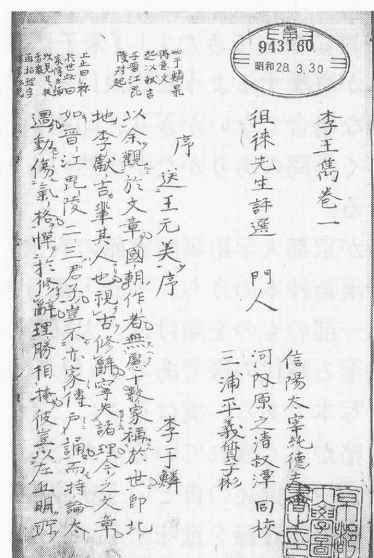 943160
昭和28.3.30
李王雋卷一
徂徠先生評選 門人
信陽太宰純德夫
河内原之清叔潭 同校
三浦平義質子彬
序
送王元美序 李于鱗
以余觀於文章國朝作者無慮十數家稱於世即北
地李獻吉輩其人也視古修辭寧失諸理今之文章
如晋江毘陵二三君子豈不亦家傳戸誦而持論太
過動傷氣格憚於修辭理勝相掩彼豈以左丘明所
起以獻吉
陵對起
上止曰稱
於世此曰